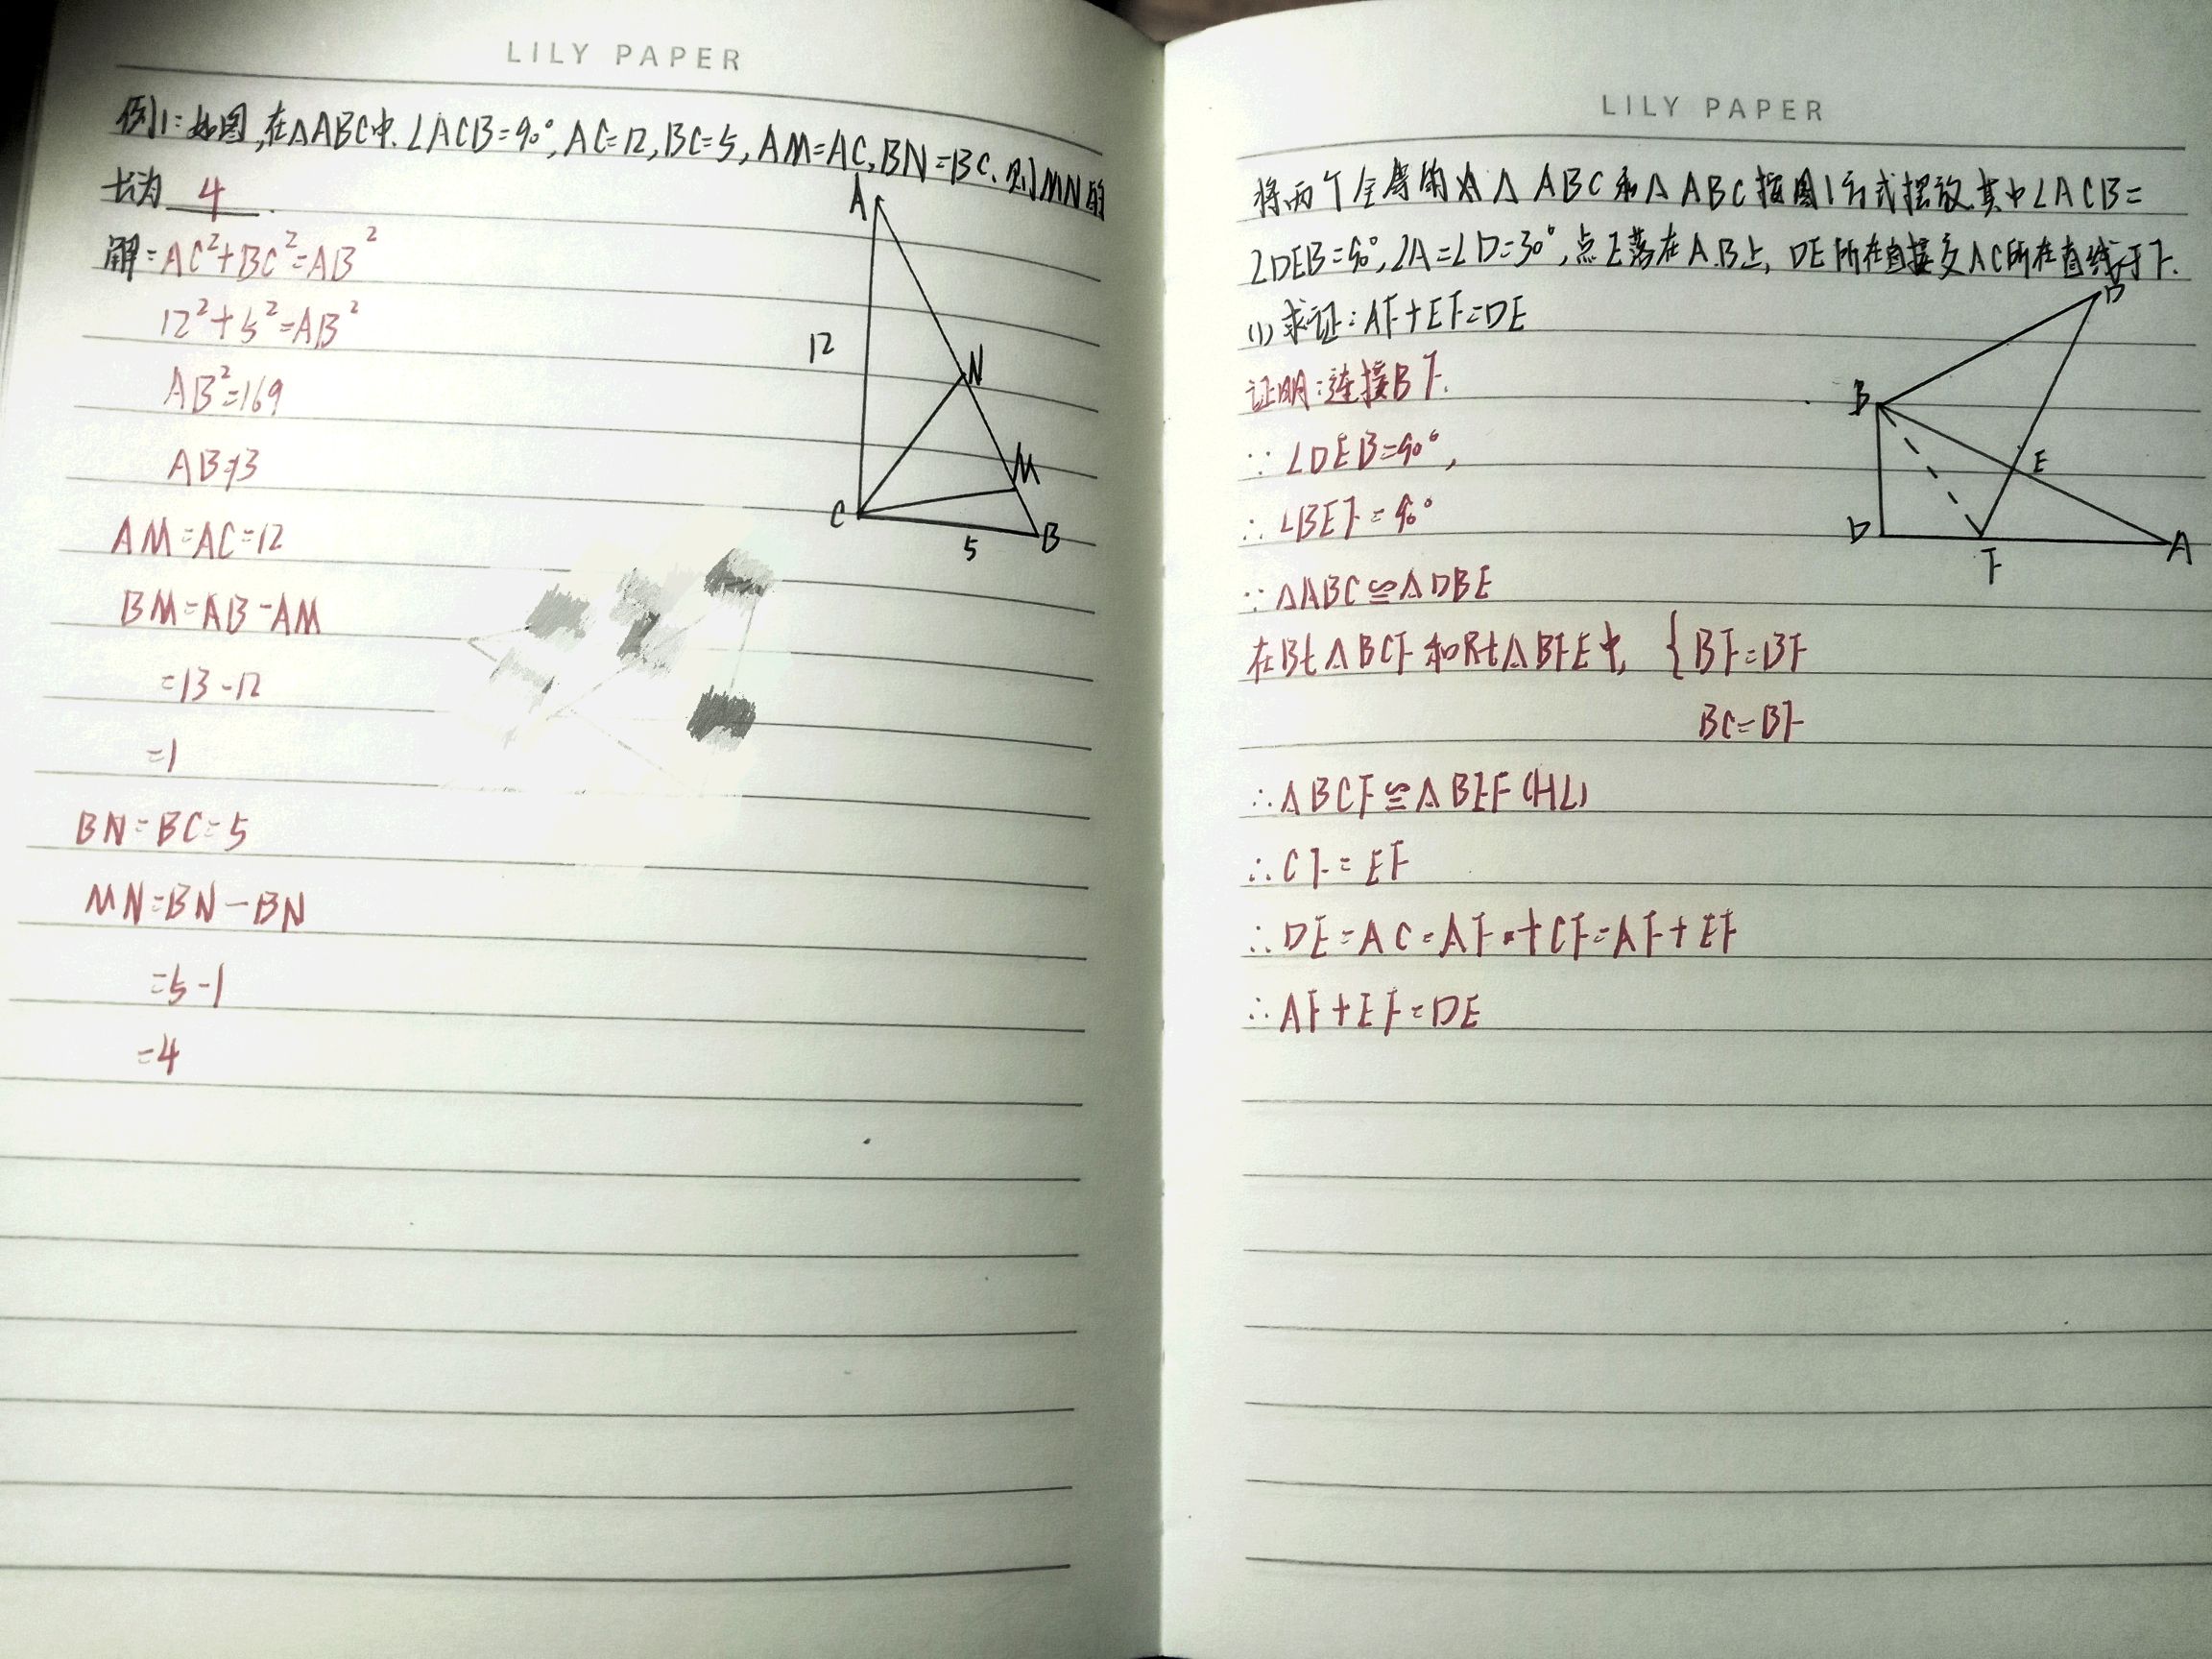 LILY PAPER
例1:如图,在△ABC中.∠ACB=90°,AC=12,BC=5,AM=AC,BN=BC.则MN的
长为 4 .
解:AC²+BC²=AB²
12²+5²=AB²
AB²=169
AB=13
AM=AC=12
BM=AB-AM
=13-12
=1
BN=BC=5
MN=BN-BN
=5-1
=4
A
12
N
M
C
B
5
LILY PAPER
将两个全等的 △ABC和△ABC按图1方式摆放.其中∠ACB=
∠DEB=90°,∠A=∠D=30°,点E落在AB上,DE所在直接交AC所在直线于F.
(1)求证:AF+EF=DE
证明:连接BF.
∵∠DEB=90°,
∴∠BEF=90°
∵△ABC≌△DBE
在Bt△BCF和Rt△BFE中, { BF=BF
BC=BF
∴△BCF≌△BEF(HL)
∴CF=EF
∴DE=AC=AF+CF=AF+EF
∴AF+EF=DE
D
B
E
D
F
A